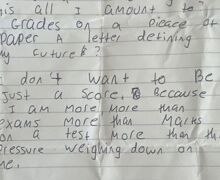 is all I amount to?
Grades on a Pieace of
PAPER A letter defining
my Cuture?
I don't want to Be
Just a Score. Because
I am more more than
exams more than Marks
on a test more than the
Pressure weighing down on
me.